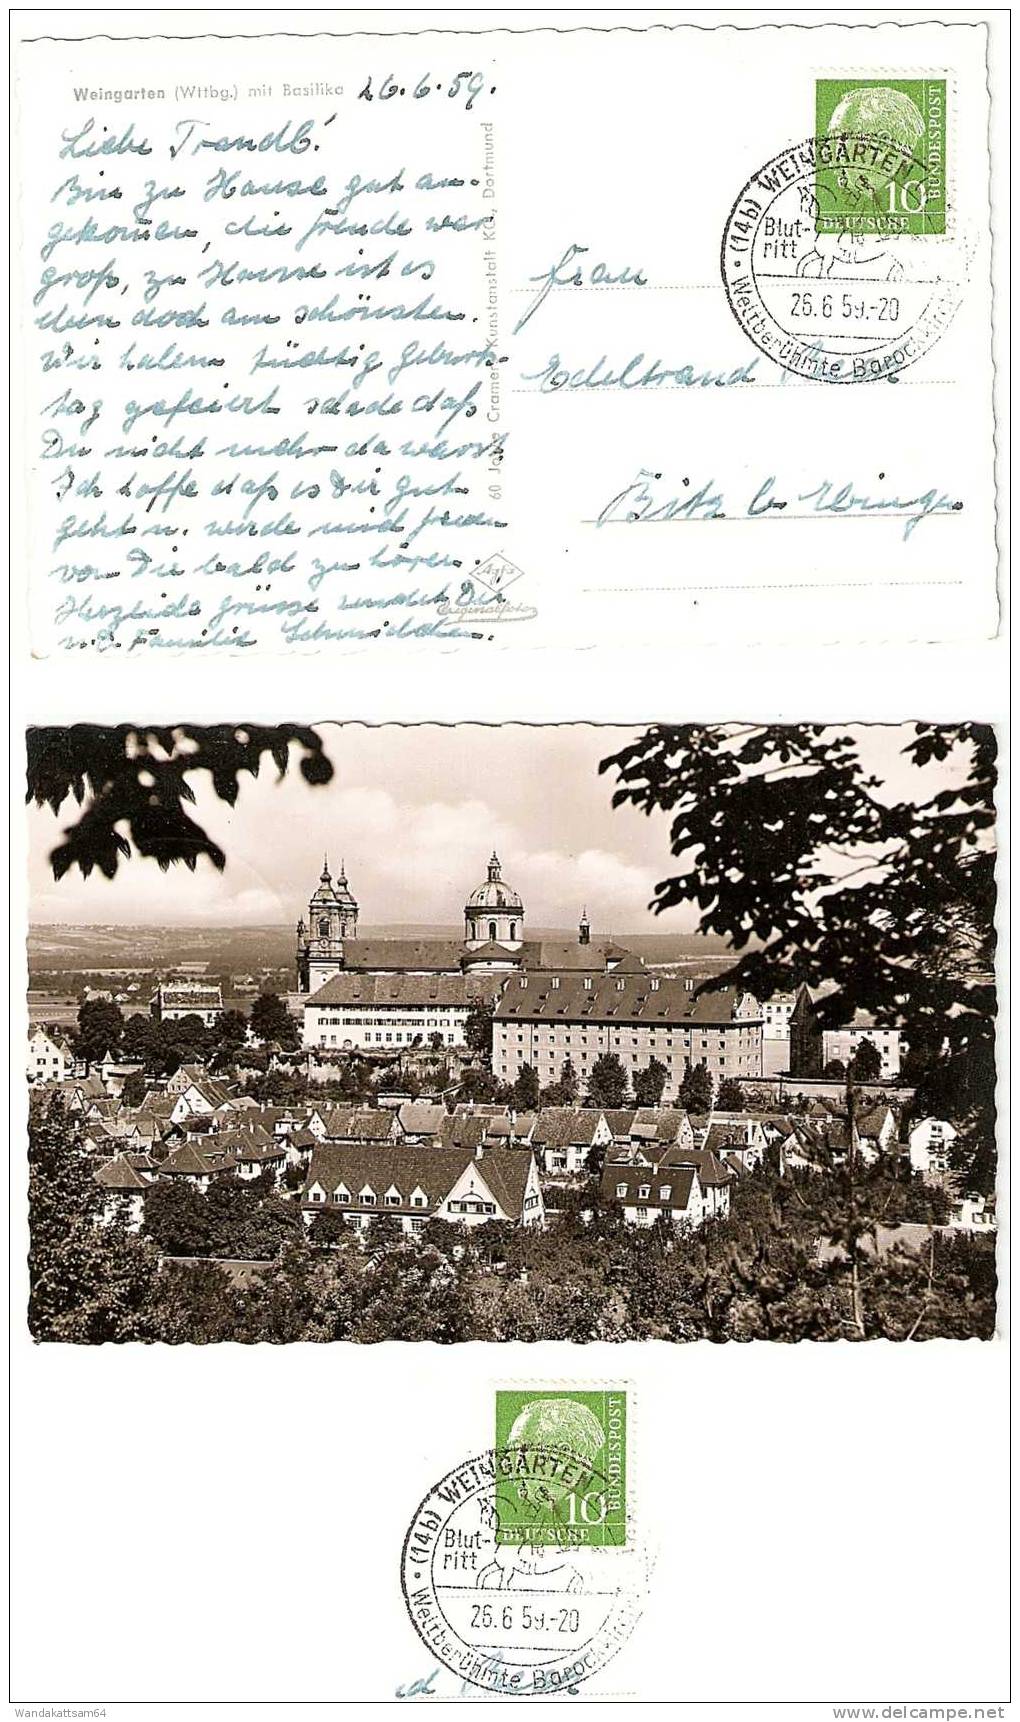 Weingarten (Wttbg.) mit Basilika 26.6.59.
Liebe Traudl!
Bin zu Hause gut an-
gekommen, die Freude war
groß, zu Hause ist es
eben doch am schönsten.
Wir haben tüchtig Geburts-
tag gefeiert schade daß
Du nicht mehr da warst
Ich hoffe daß es Dir gut
geht u. werde mich freuen
von Dir bald zu hören.
Herzliche Grüsse sendet Dir
Familie
60 Jahre Cramers Kunstanstalt KG., Dortmund
Agfa
Originalfoto
DEUTSCHE
BUNDESPOST
10
(14b) WEINGARTEN
Blut-
ritt
26.6 59.-20
Weltberühmte Barockkirche
Frau
Edeltraud
Bitz b Ebingen
DEUTSCHE
BUNDESPOST
10
(14b) WEINGARTEN
Blut-
ritt
26.6 59.-20
Weltberühmte Barockkirche
Wandakattsam64
www.delcampe.net